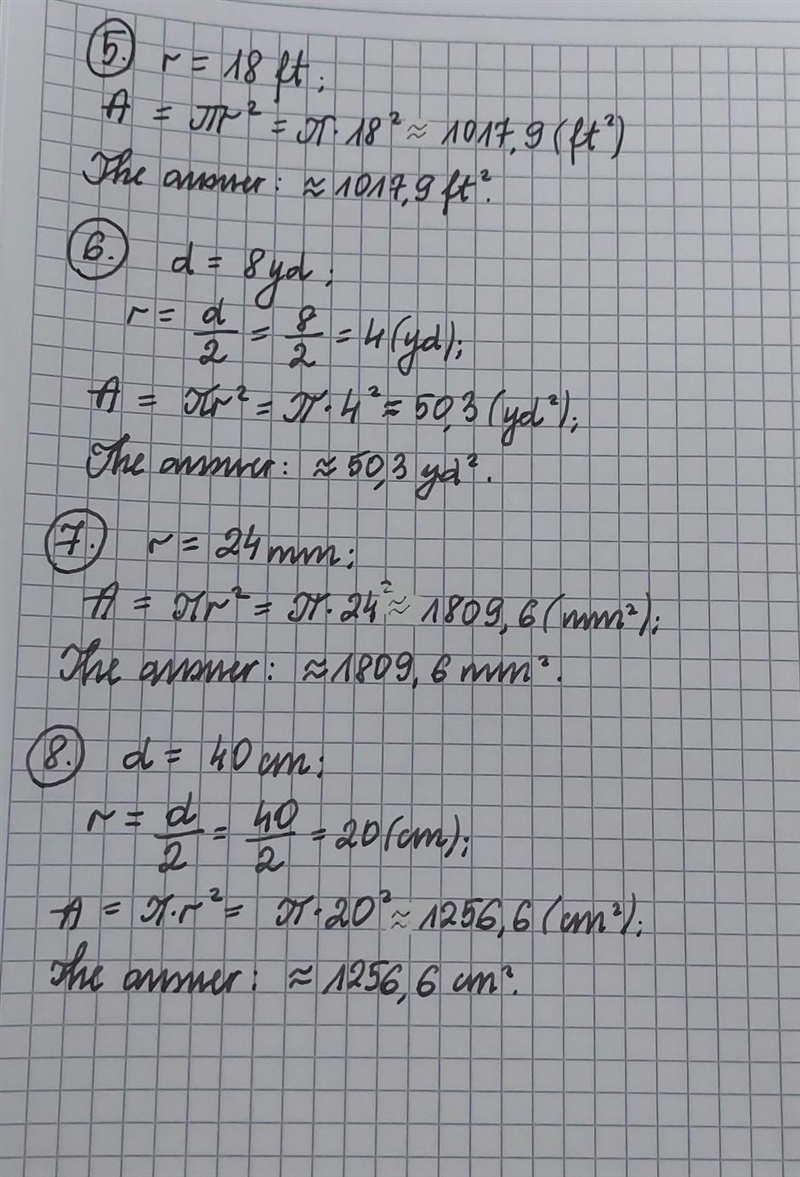 5. r = 18 ft;
A = πr² = π·18² ≈ 1017,9 (ft²)
The answer: ≈ 1017,9 ft².
6. d = 8 yd;
r = d/2 = 8/2 = 4 (yd);
A = πr² = π·4² ≈ 50,3 (yd²);
The answer: ≈ 50,3 yd².
7. r = 24 mm;
A = πr² = π·24² ≈ 1809,6 (mm²);
The answer: ≈ 1809,6 mm².
8. d = 40 cm;
r = d/2 = 40/2 = 20 (cm);
A = π·r² = π·20² ≈ 1256,6 (cm²);
The answer: ≈ 1256,6 cm².